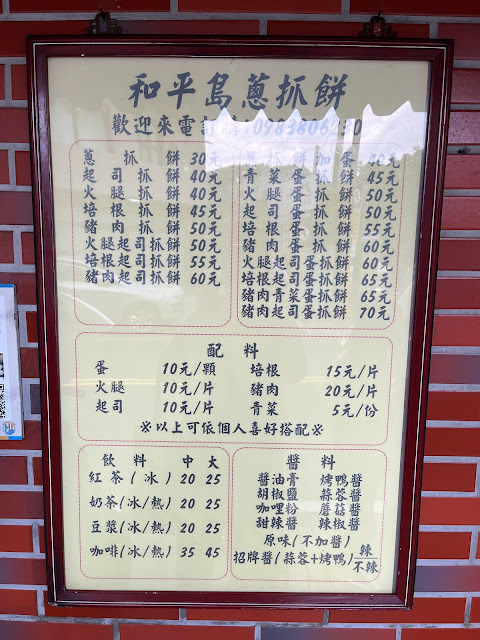 和平島蔥抓餅
歡迎來電訂購:0983806230
蔥抓餅 30元
起司抓餅 40元
火腿抓餅 40元
培根抓餅 45元
豬肉抓餅 50元
火腿起司抓餅 50元
培根起司抓餅 55元
豬肉起司抓餅 60元
蔥抓餅加蛋 40元
青菜蛋抓餅 45元
火腿蛋抓餅 50元
起司蛋抓餅 50元
培根蛋抓餅 55元
豬肉蛋抓餅 60元
火腿起司蛋抓餅 60元
培根起司蛋抓餅 65元
豬肉青菜蛋抓餅 65元
豬肉起司蛋抓餅 70元
配料
蛋 10元/顆 培根 15元/片
火腿 10元/片 豬肉 20元/片
起司 10元/片 青菜 5元/份
※以上可依個人喜好搭配※
飲料 中 大
紅茶(冰) 20 25
奶茶(冰/熱) 20 25
豆漿(冰/熱) 20 25
咖啡(冰/熱) 35 45
醬料
醬油膏 烤鴨醬
胡椒鹽 蒜蓉醬
咖哩粉 蘑菇醬
甜辣醬 辣椒醬
原味(不加醬)
招牌醬(蒜蓉+烤鴨)辣/不辣